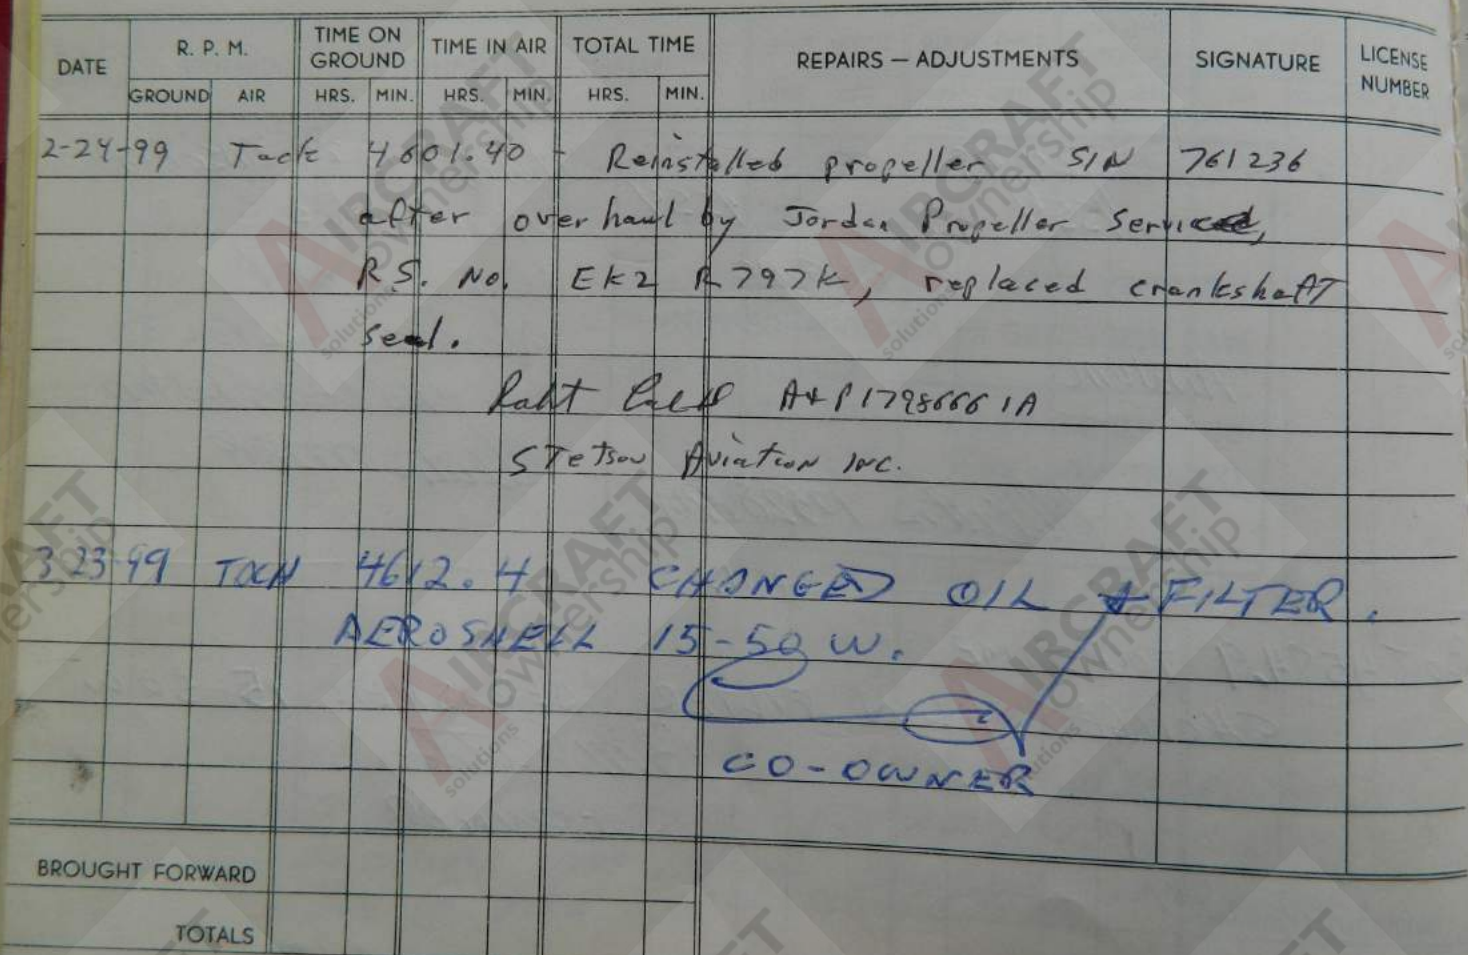 DATE R. P. M. TIME ON GROUND TIME IN AIR TOTAL TIME REPAIRS — ADJUSTMENTS SIGNATURE LICENSE NUMBER
GROUND AIR HRS. MIN. HRS. MIN. HRS. MIN.
2-24-99 Tach 4601.40 - Reinstalled propeller S/N 761236
after overhaul by Jordan Propeller Service,
R.S. No. EK2 R797K, replaced crankshaft
seal.
A&P 1798666 IA
Stetson Aviation Inc.
3-23-99 TACH 4612.4 CHANGED OIL & FILTER.
AEROSHELL 15-50 W.
CO-OWNER
BROUGHT FORWARD
TOTALS
AIRCRAFT
ownership
solutions